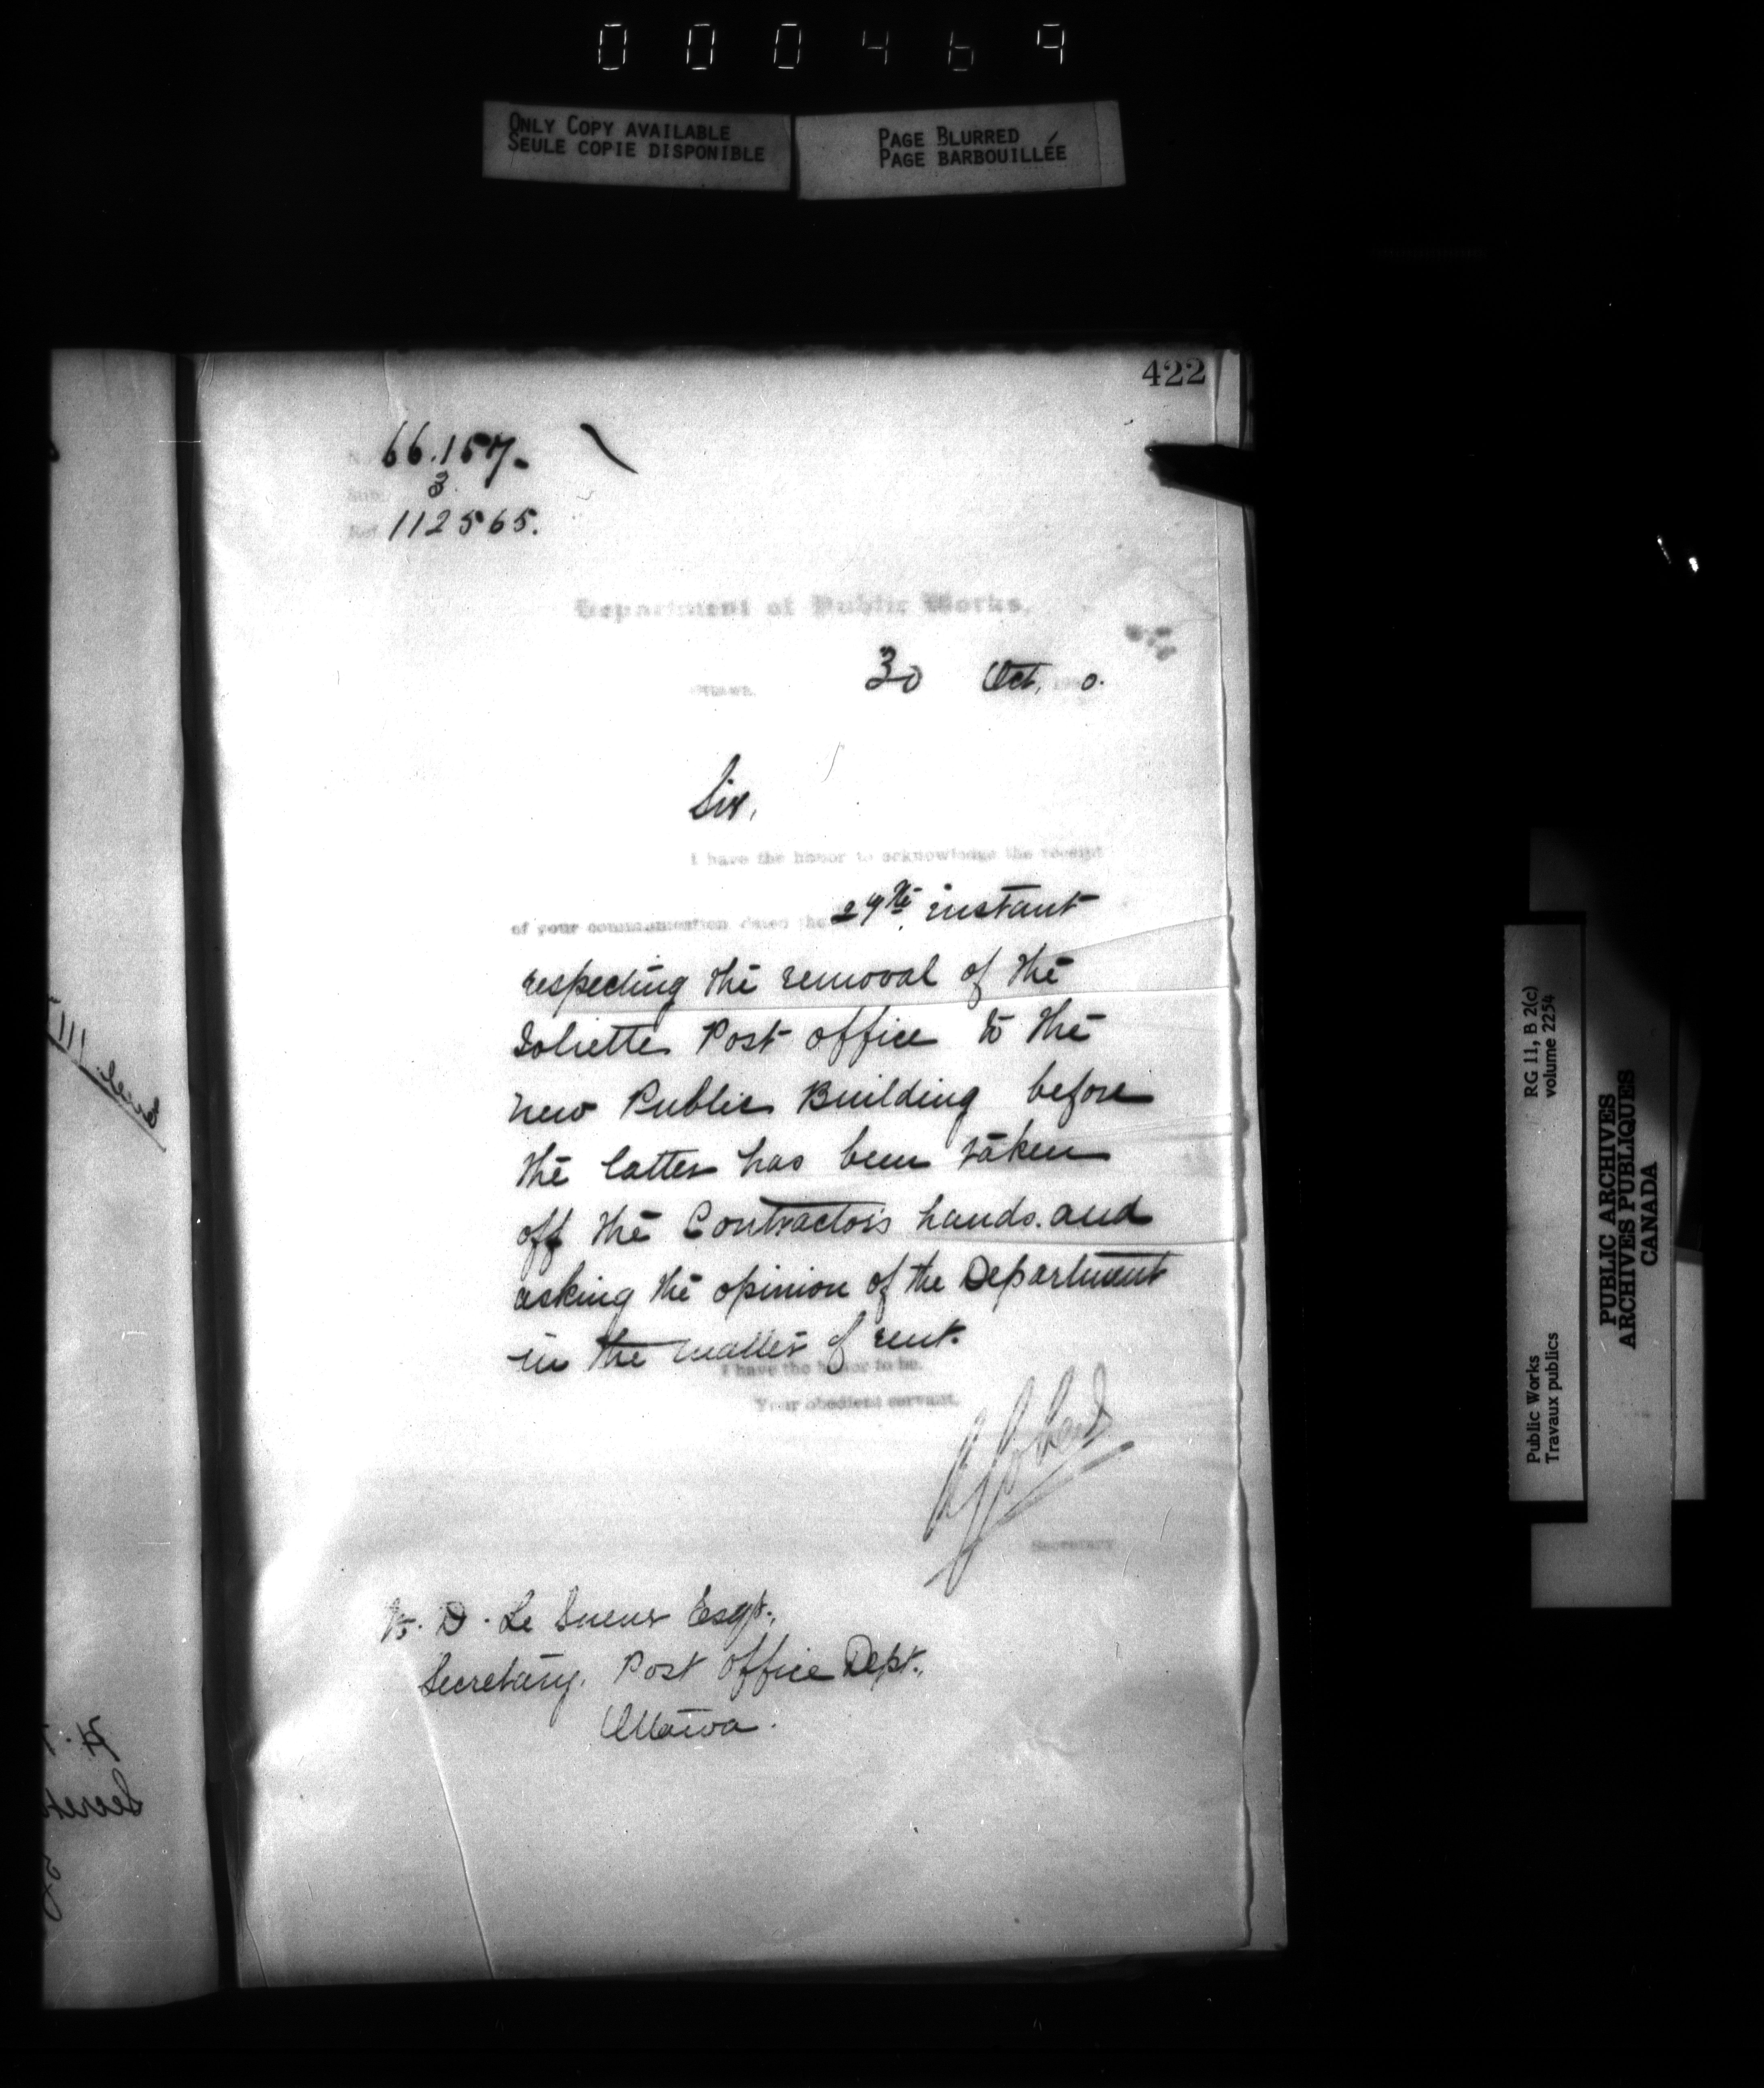 000469
ONLY COPY AVAILABLE
SEULE COPIE DISPONIBLE
PAGE BLURRED
PAGE BARBOUILLÉE
422
66.157.
Sub. 3.
Ref. 112565.
Department of Public Works.
Ottawa, 30 Oct. 0.
Sir,
I have the honor to acknowledge the receipt
of your communication dated the 29th. instant
respecting the removal of the
Joliette Post office to the
new Public Building before
the latter has been taken
off the Contractor's hands. and
asking the opinion of the Department
in the matter of rent.
I have the honor to be,
Your obedient servant,
Secretary
W. D. Le Sueur Esqr.,
Secretary. Post Office Dept.,
Ottawa.
RG 11, B 2(c)
volume 2254
Public Works
Travaux publics
PUBLIC ARCHIVES
ARCHIVES PUBLIQUES
CANADA